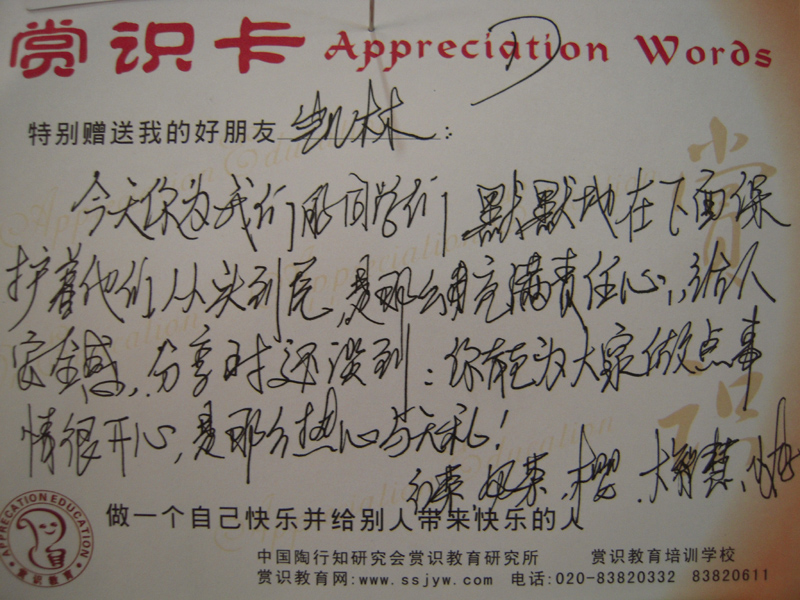 赏识卡 Appreciation Words
特别赠送我的好朋友 凯林 :
今天你为我们那同学们默默地在下面保
护着他们从头到尾,是那么有充满责任心,给人
安全感,分享时还谈到:你能为大家做点事
情很开心,是那么热心与无私!
做一个自己快乐并给别人带来快乐的人
中国陶行知研究会赏识教育研究所 赏识教育培训学校
赏识教育网:www.ssjyw.com 电话:020-83820332 83820611
APPRECATION EDUCATION
赏识教育
赏识